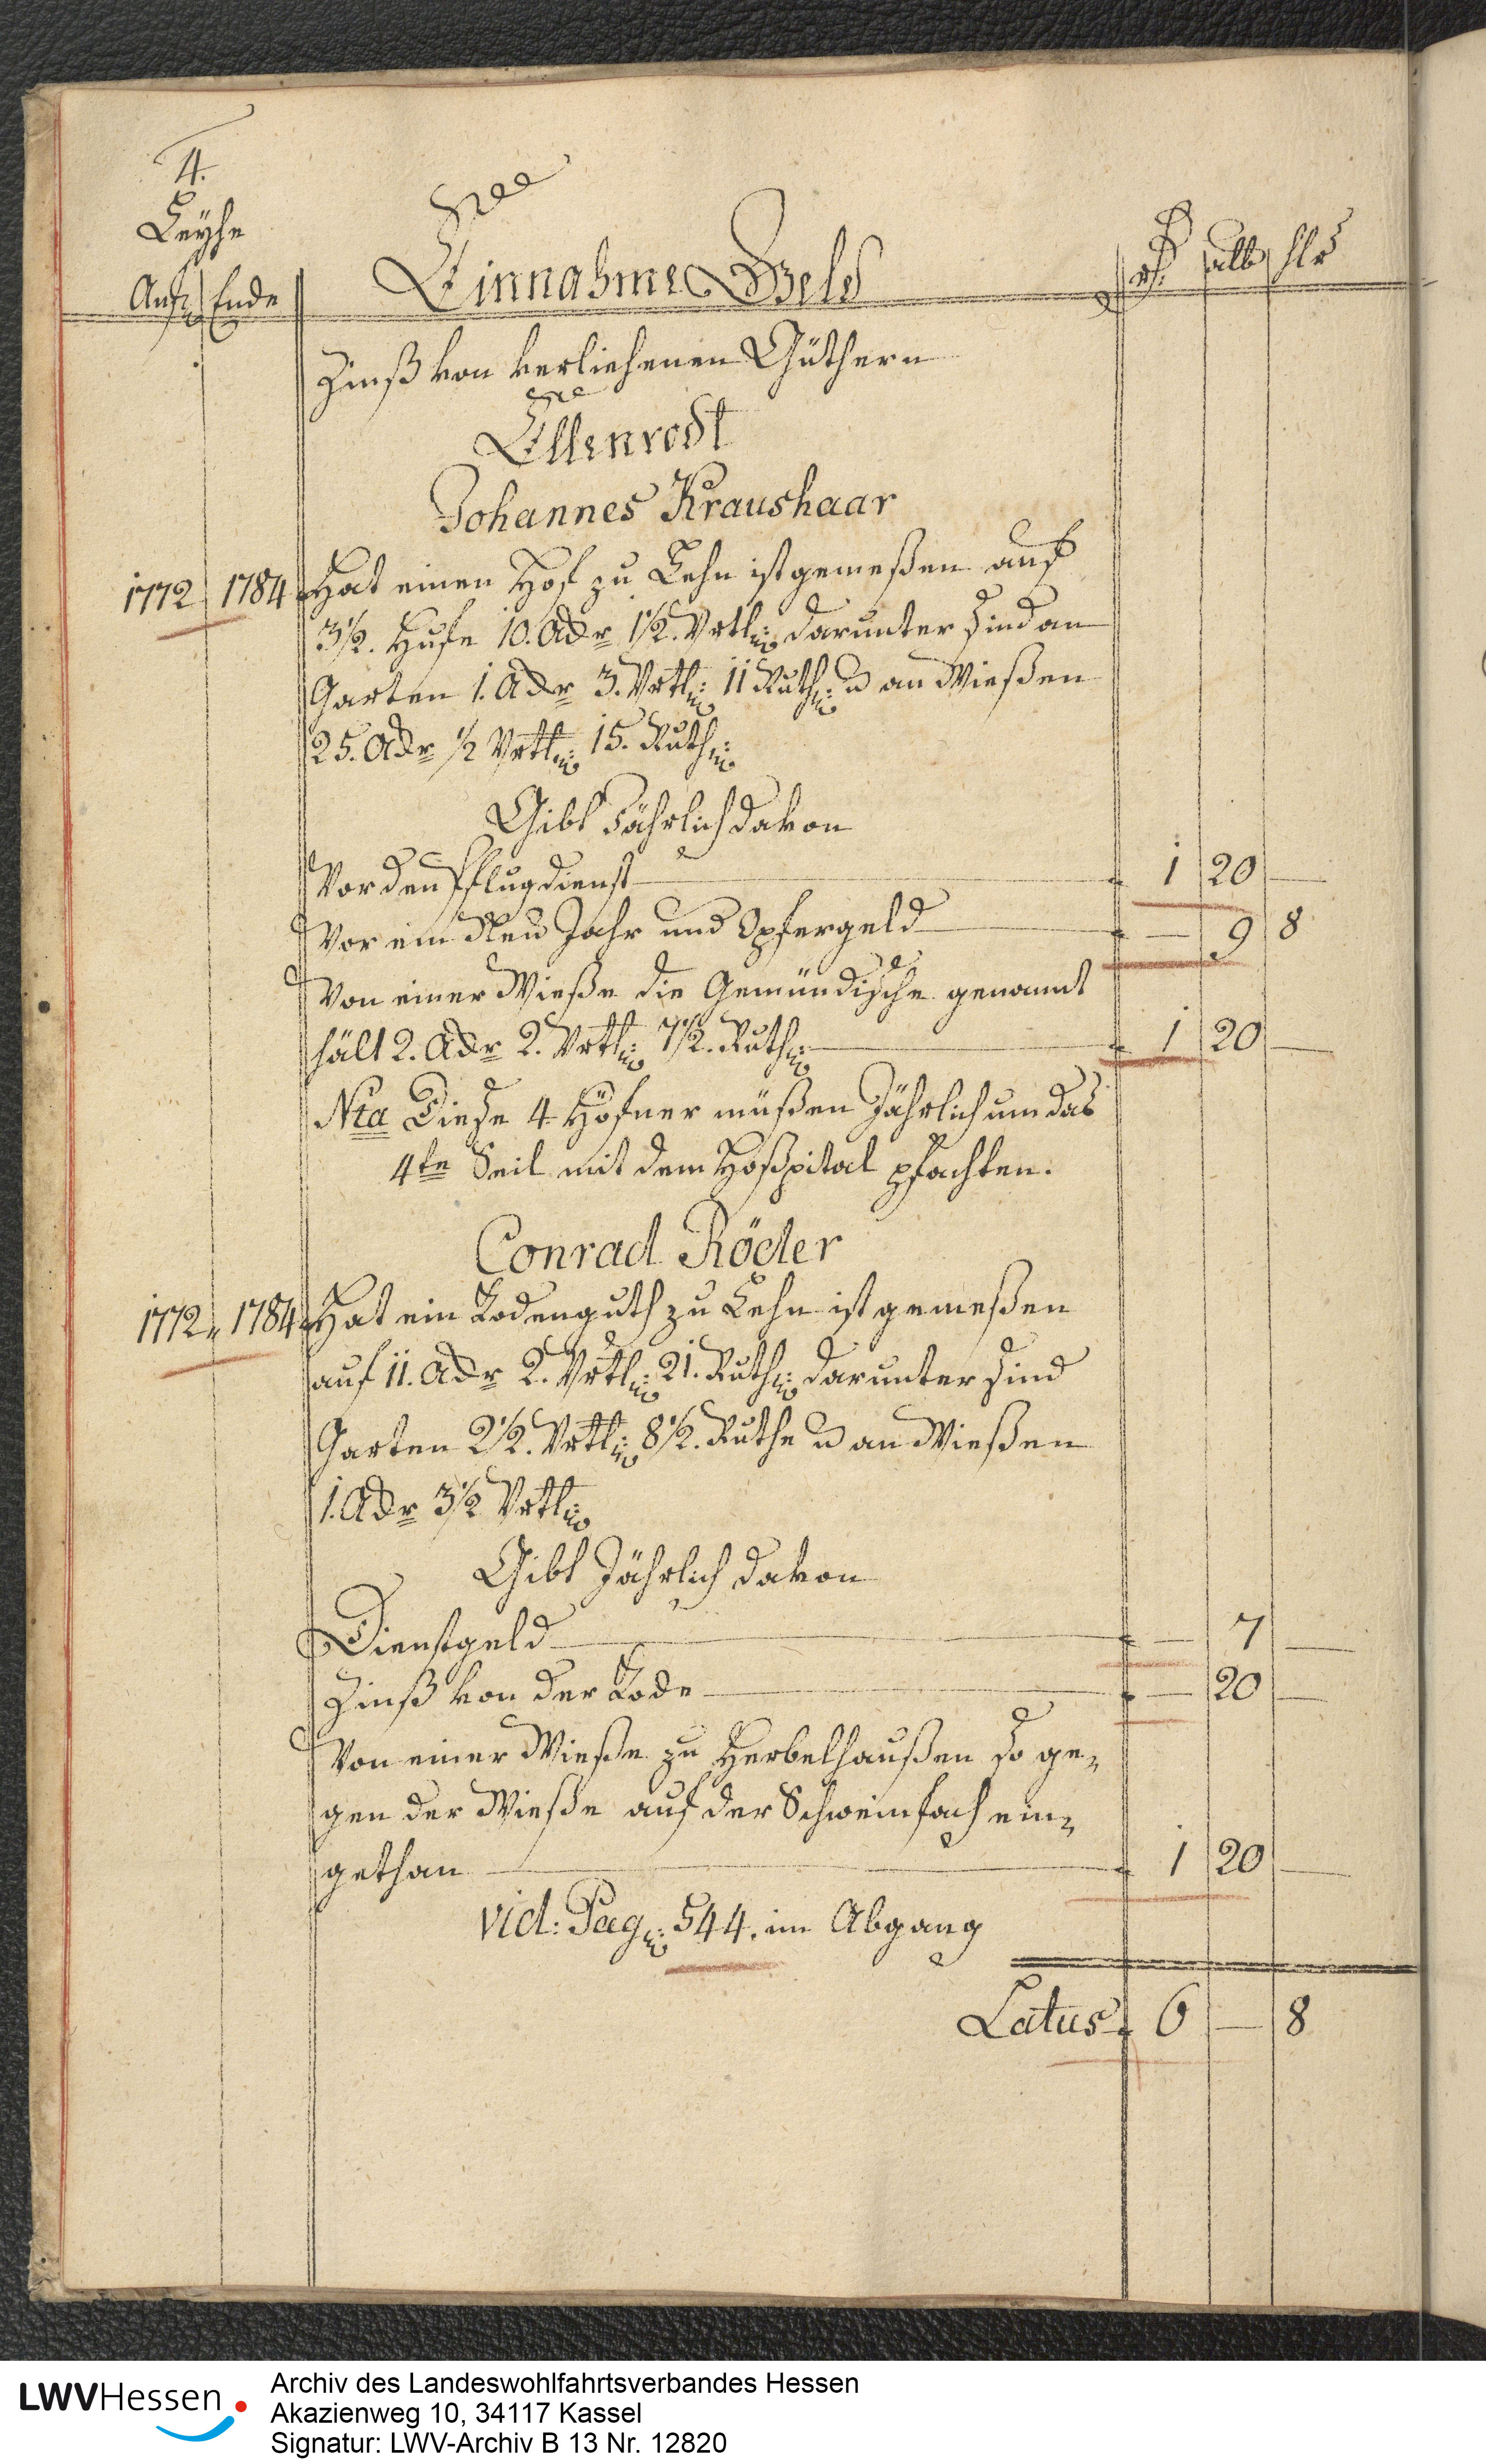 4.
Leyhe
Anf: Ende
Einnahme Geld
rf. alb hlr
Zinß von verliehenen Güthern
Ellenrodt
Johannes Kraushaar
1772 1784 Hat einen Hof zu Lehn ist gemeßen auf
3½. Hufe 10. Adr 1½. Vrtl: darunter sind an
Garten 1. Adr 3. Vrtl: 11 Ruth: u an Wießen
25. Adr ½ Vrtl: 15. Ruth:
Gibt Jährlich davon
Vor den Pflugdienst 1 20 —
Vor ein Neu Jahr und Opfergeld — 9 8
Von einer Wieße die Gemündische genannt
hält 2. Adr 2. Vrtl: 7½. Ruth: 1 20 —
Nta Diese 4 Höfner müßen Jährlich um das
4te Seil mit dem Hoßpital pfachten.
Conrad Röder
1772 „ 1784 Hat ein Rodenguth zu Lehn ist gemeßen
auf 11. Adr 2. Vrtl: 21. Ruth: darunter sind
Garten 2½. Vrtl: 8½. Ruthe u an Wießen
1. Adr 3½ Vrtl:
Gibt Jährlich davon
Dienstgeld — 7 —
Zinß von der Rode — 20 —
Von einer Wieße zu Herbelhaußen so ge„
gen der Wieße auf der Schweinfach ein„
gethan 1 20 —
vid: Pag: 544. im Abgang
Latus 6 — 8
LWVHessen
Archiv des Landeswohlfahrtsverbandes Hessen
Akazienweg 10, 34117 Kassel
Signatur: LWV-Archiv B 13 Nr. 12820